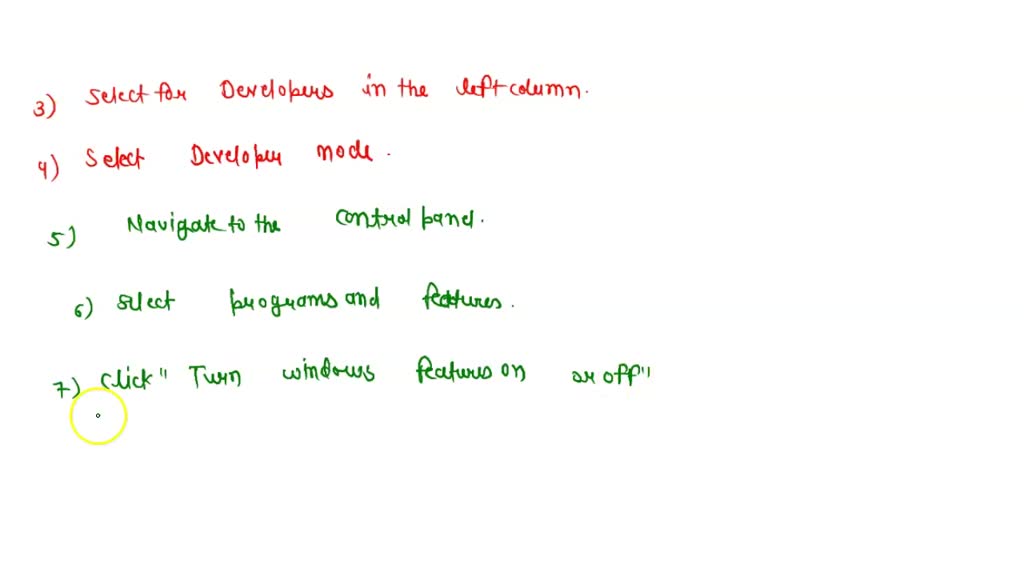 3) Select for Developers in the left column.
4) Select Developer mode.
5) Navigate to the control panel.
6) Select programs and features.
7) Click "Turn windows features on or off"